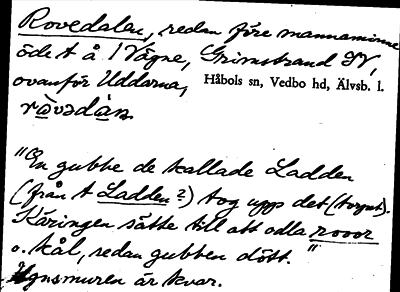 Rovedalen, redan före mannaminne
öde t å 1 Vägne, Grimstrand SV,
ovanför Uddarna,
Håbols sn, Vedbo hd, Älvsb. l.
"En gubbe de kallade Ladden
(från t Ladden?) tog upp det (torpet).
Käringen sätte till att odla rovor
o. kål, sedan gubben dött."
Ugnsmuren är kvar.